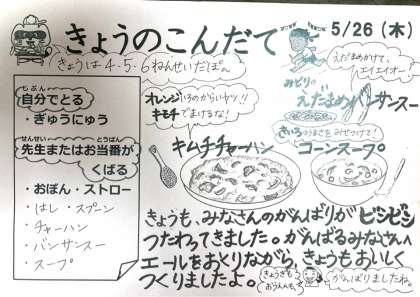 きょうのこんだて
5/26(木)
きょうは4・5・6ねんせいだぽん
じぶん
自分でとる
・ぎゅうにゅう
せんせい とうばん
先生またはお当番が
くばる
・おぼん・ストロー
・はし・スプーン
・チャーハン
・バンサンスー
・スープ
えだまめかけて、
エイエイオー!
みどりの
えだまめバンサンスー
オレンジいろのからいヤツ!!
キモチでまけるな!
きいろのつよさをみせつけて!
キムチチャーハン
コーンスープ
きょうも、みなさんのがんばりがビンビン
つたわってきました。がんばるみなさんへ
エールをおくりながら、きょうもおいしく
つくりましたよ。
きょうぎも
おうえんも、
がんばりましたね。